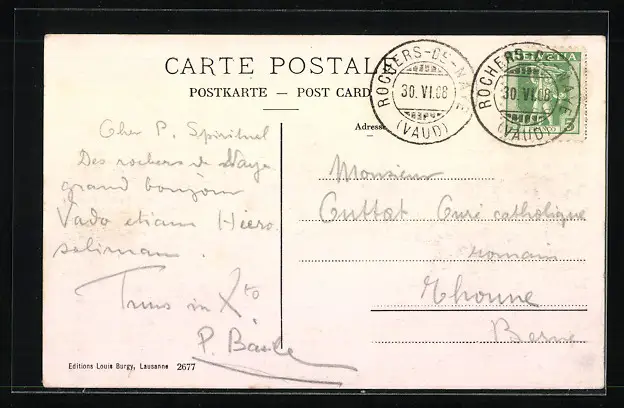 CARTE POSTALE
POSTKARTE — POST CARD
Adresse
ROCHERS-DE-NAYE
30. VI. 08
(VAUD)
ROCHERS-DE-NAYE
30. VI. 08
(VAUD)
HELVETIA
5
Cher P. Spirituel
Des rochers de Naye
grand bonjour
Vado etiam Hiero
solimam.
Tuus in Xto
P. Basile
Monsieur
Cuttat Curé catholique
romain
Thoune
Berne
Editions Louis Burgy, Lausanne 2677